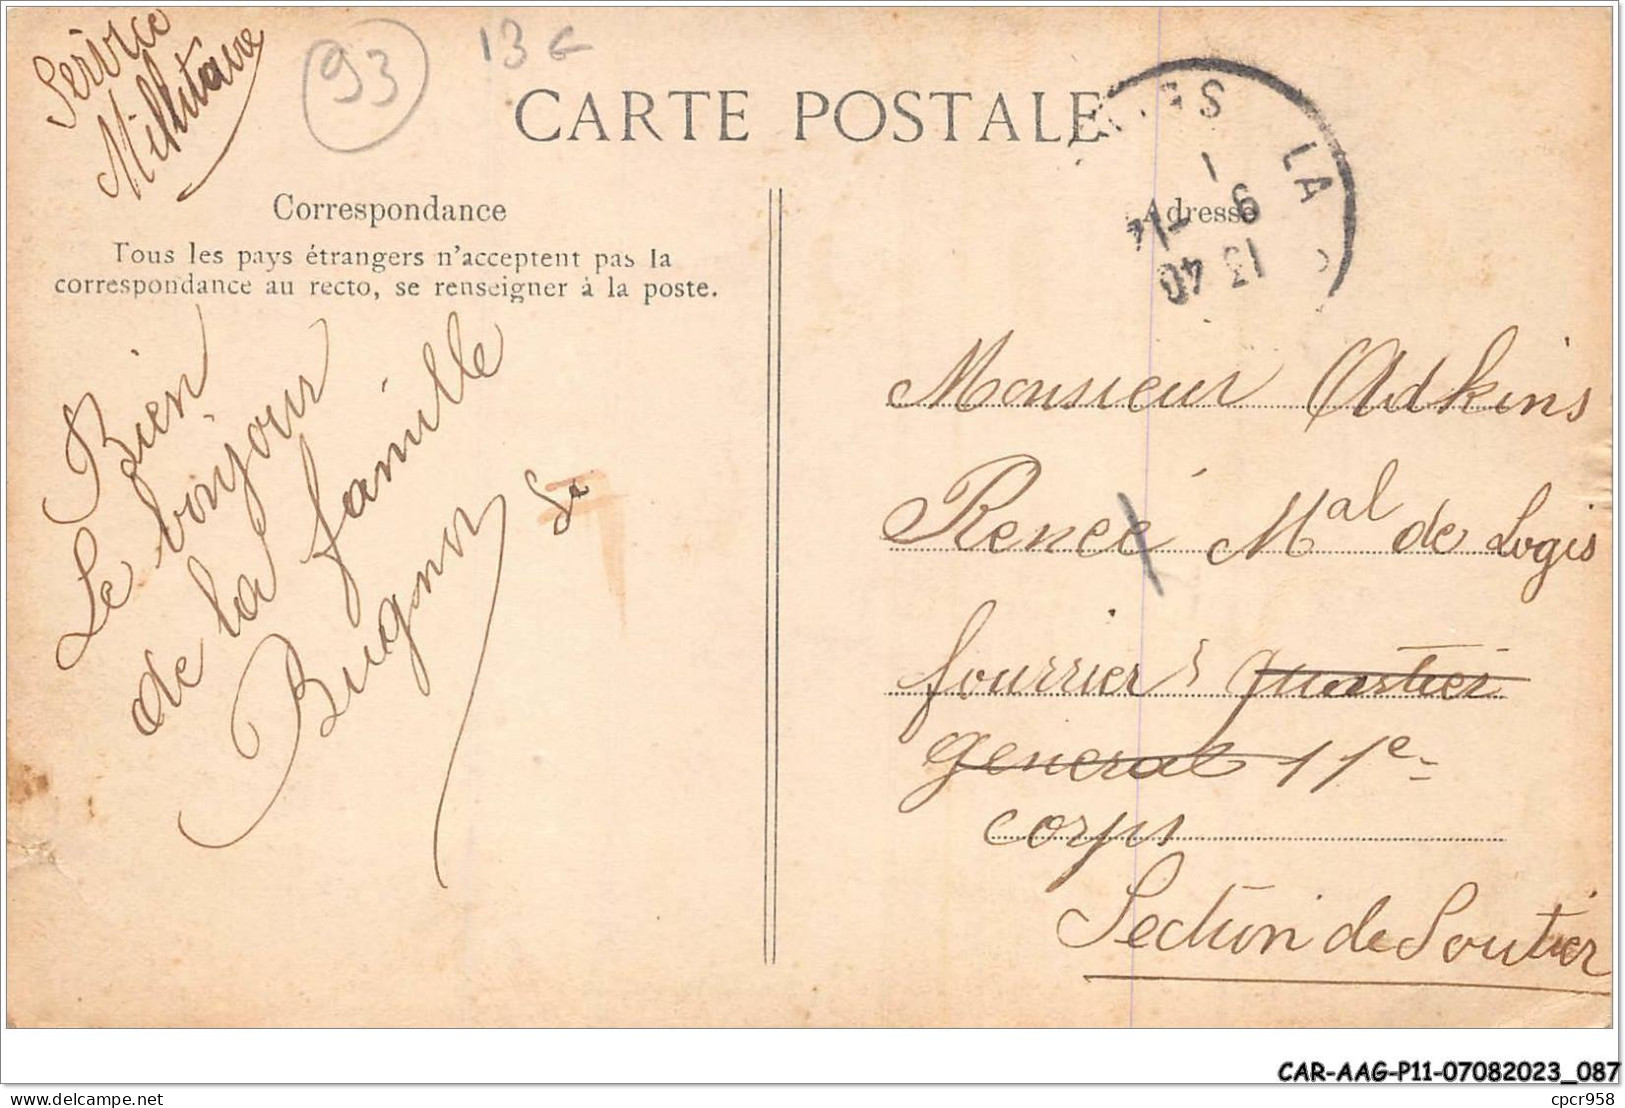 Service
Militaire
93
13 €
CARTE POSTALE
Correspondance
Tous les pays étrangers n'acceptent pas la
correspondance au recto, se renseigner à la poste.
Bien
Le bonjour
de la famille
Bugnon
Adresse
LA
1
9 -14
13 40
Monsieur Adkins
Renée Mal de Logis
fourrier quartier
general 11e
corps
Section de Soutier
CAR-AAG-P11-07082023_087
delcampe.net
cpcr958